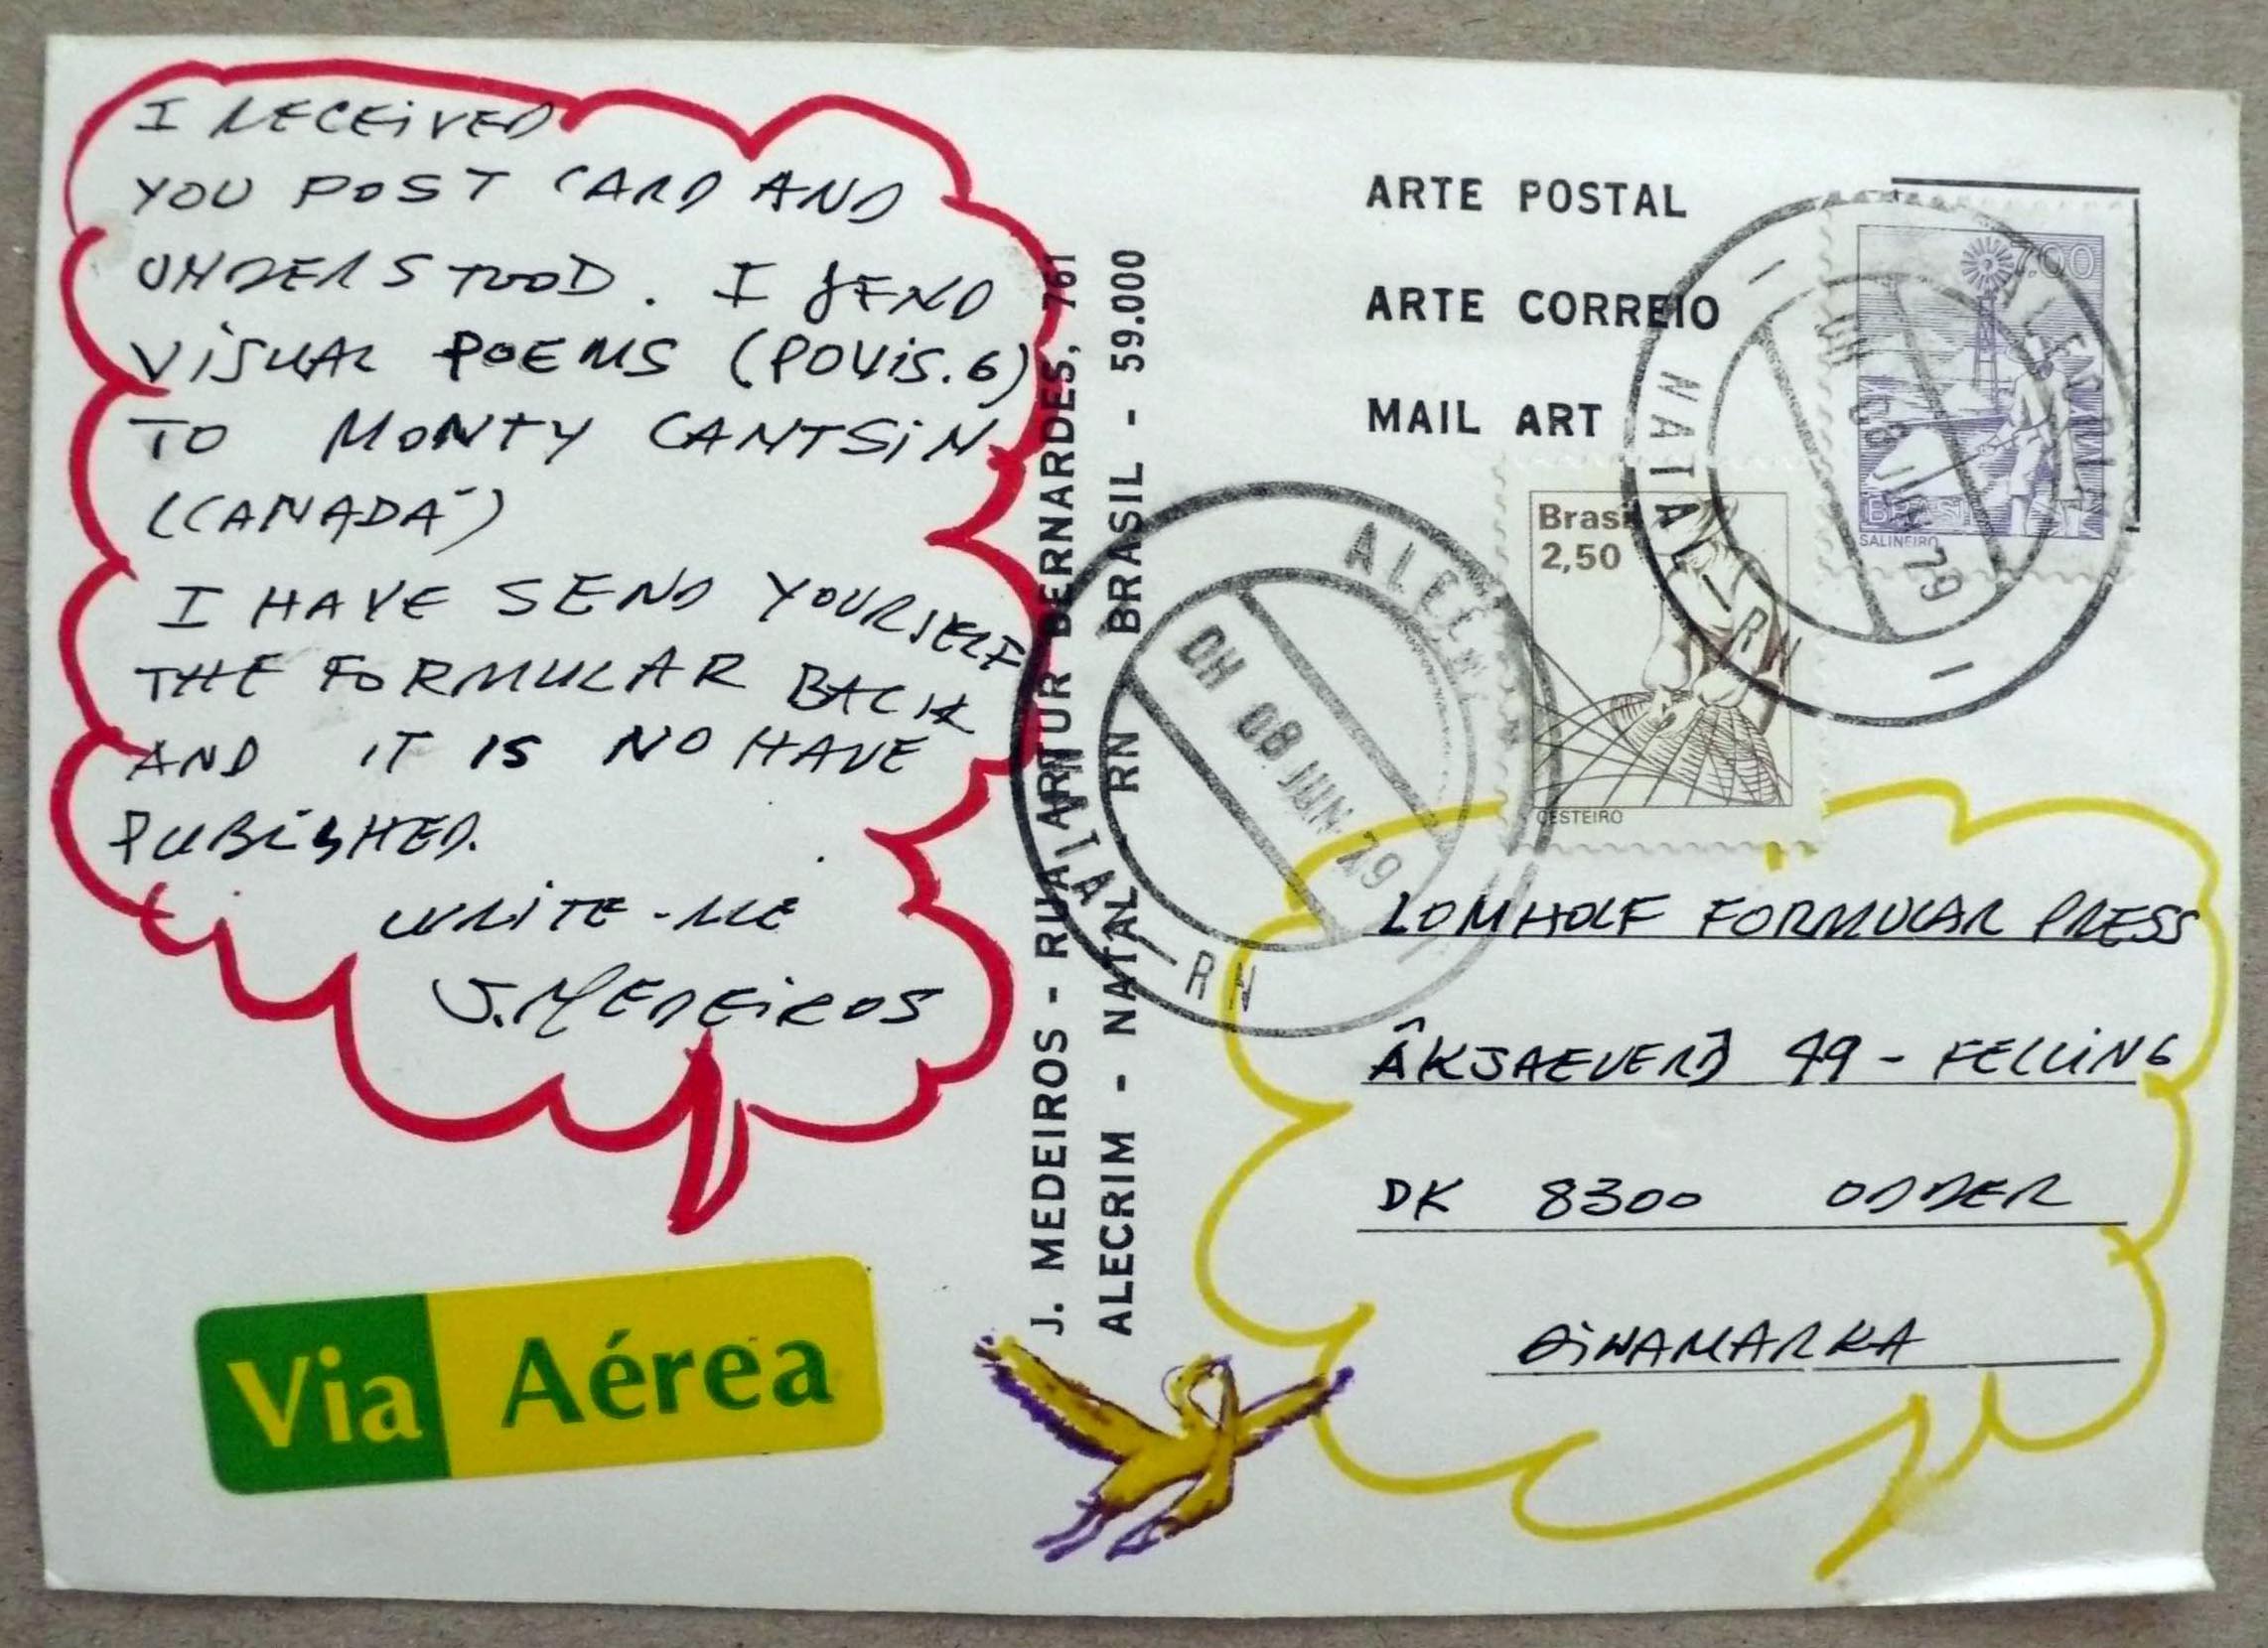 I RECEIVED
YOU POST CARD AND
UNDERSTOOD. I SEND
VISUAL POEMS (POVIS.6)
TO MONTY CANTSIN
(CANADÁ)
I HAVE SEND YOURSELF
THE FORMULAR BACK
AND IT IS NO HAVE
PUBLISHED.
WRITE-ME
J. MEDEIROS
Via Aérea
J. MEDEIROS - RUA ARTUR BERNARDES, 761
ALECRIM - NATAL - RN BRASIL - 59.000
ARTE POSTAL
ARTE CORREIO
MAIL ART
7,00
BRASIL
SALINEIRO
ALECRIM
NATAL-RN
DH 08 JUN 79
Brasil
2,50
CESTEIRO
ALECRIM
NATAL-RN
DH 08 JUN 79
LOMHOLF FORMULAR PRESS
ÂKJAEVERJ 49 - FELLING
DK 8300 ODDER
DINAMARKA